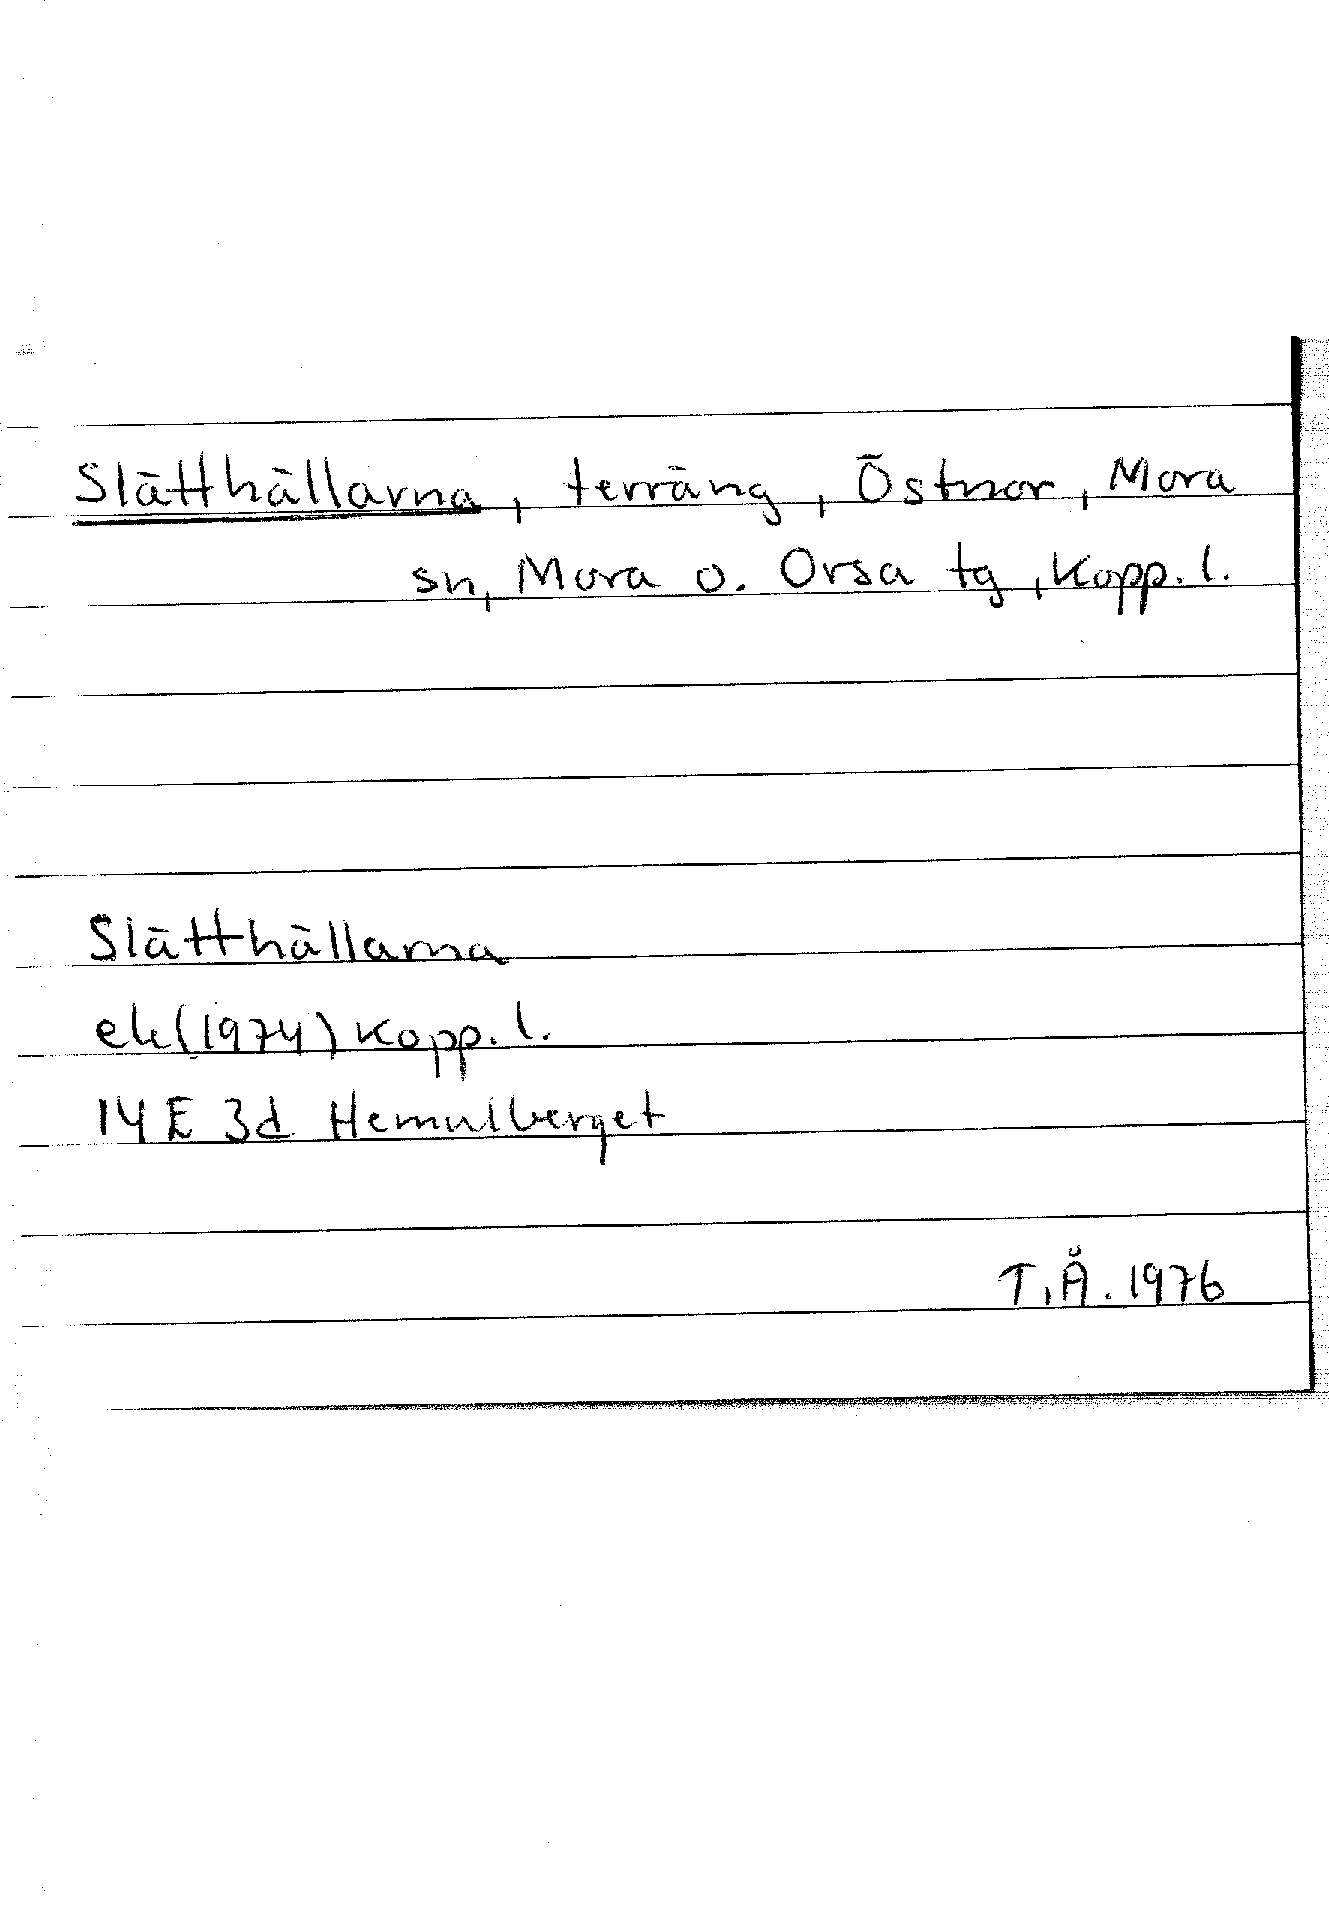 Slätthällarna, terräng, Östnor, Mora
sn, Mora o. Orsa tg, Kopp. l.
Slätthällarna
ek (1974) Kopp. l.
14 E 3d Hemulberget
T.Å. 1976